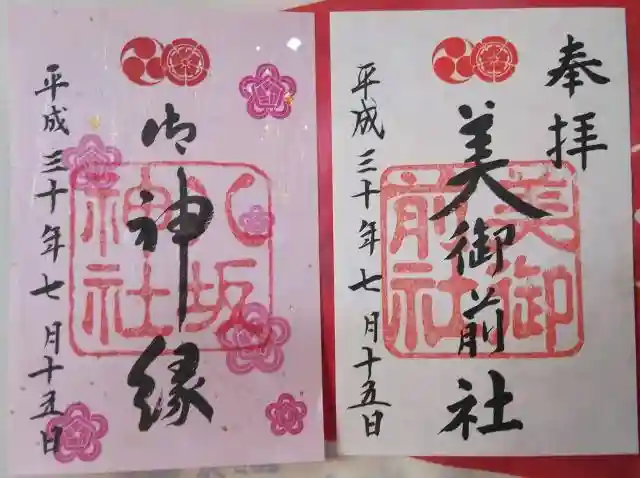 御神縁
八坂
神社
平成三十年七月十五日
奉拝
美御前社
美御
前社
平成三十年七月十五日